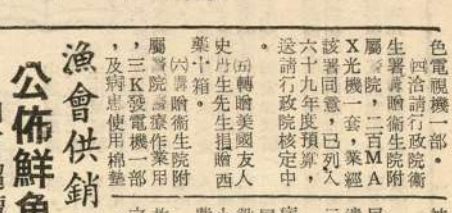 色電視機一部。
㈣洽請行政院衛
生署購贈衛生院附
屬醫院，二百MA
X光機一套，業經
該署同意，已列入
六十九年度預算，
送請行政院核定中
。
㈤轉贈美國友人
史丹生先生捐贈西
藥十箱。
㈥購贈衛生院附
屬醫院醫療作業用
，三K發電機一部
，及病患使用棉墊
漁會供銷
公佈鮮魚